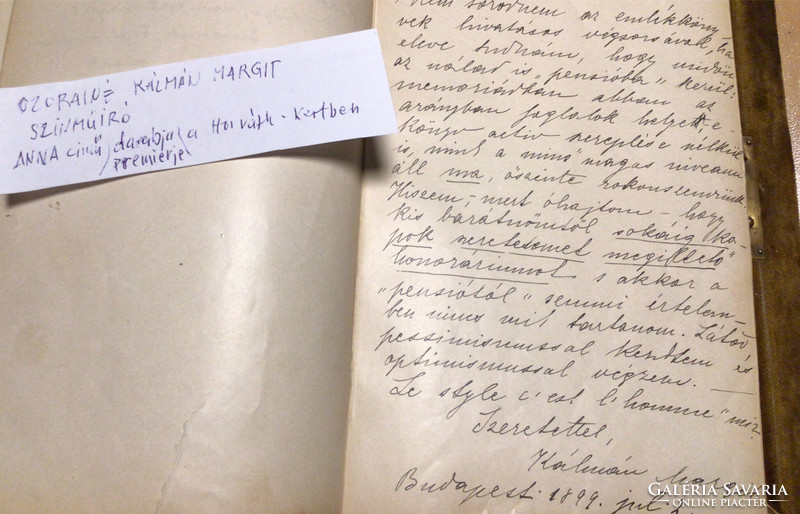 OZORAINÉ KÁLMÁN MARGIT
SZINMŰÍRÓ
ANNA című darabja a Horváth-kertben
premierje
nem sorodnem az emlékköny-
vek hivatásos végsorsával, ha
eleve tudnám, hogy
az nálad is "pensióba" kerül:
memoriádban abban az
arányban foglalok helyet, e
könyv activ szereplése nélkül
is, mint a mino magas niveaun
áll ma, őszinte rokonszenvünk.
Hiszem, mert óhajtom - hogy
kis barátnőmtől sokáig ka-
pok szeretetemet megillető
honoráriumot s akkor a
"pensiótól" semmi értelem-
ben nincs mit tartanom. Látod
pessimismussal kezdtem és
optimismussal végzem. —
Le style c'est l'homme"
Szeretettel,
Kálmán
Budapest. 1899. jul.
GALERIA SAVARIA
ONLINE PIACTER